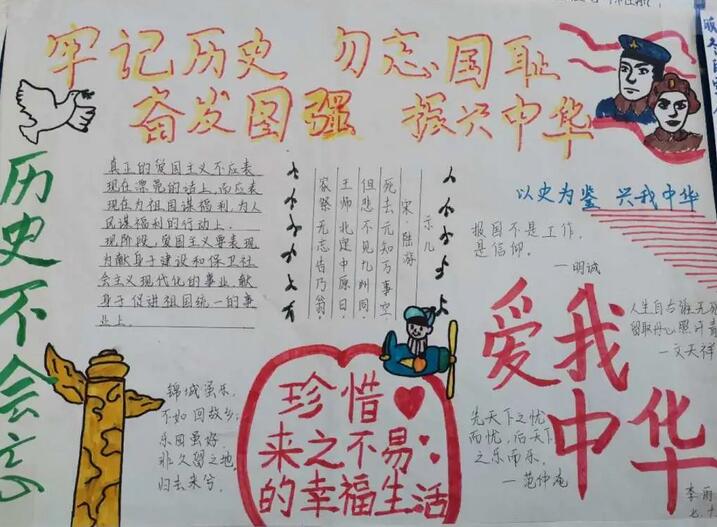 牢记历史 勿忘国耻
奋发图强 振兴中华
历史不会忘
真正的爱国主义不应表
现在漂亮的话上,而应表
现在为祖国谋福利,为人
民谋福利的行动上。
现阶段,爱国主义要表现
为献身于建设和保卫社
会主义现代化的事业,献
身于促进祖国统一的事
业上。
示儿
宋 陆游
死去元知万事空
但悲不见九州同
王师北定中原日
家祭无忘告乃翁
以史为鉴 兴我中华
报国不是工作,
是信仰。
—明诚
爱我
中华
人生自古谁无死
留取丹心照汗青
—文天祥
先天下之忧
而忧,后天下
之乐而乐。
—范仲淹
锦城虽乐,
不如回故乡;
乐园虽好,
非久留之地,
归去来兮。
珍惜
来之不易
的幸福生活
李雨
七.